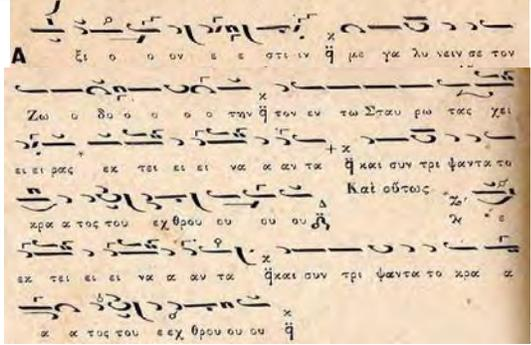 Αξι ο ο ον ε ε στι ιν ϥ̈ με γα λυ νειν σε τον
Ζω ο δο ο ο ο ο την ϥ̈ τον εν τω Σταυ ρω τας χει
ει ει ρας εκ τει ει ει να α αν τα ϥ̈ και συν τρι ψαντα το
κρα α τος του εχ θρου ου ου ου Καὶ οὕτως ε
εκ τει ει ει να α αν τα ϥ̈ και συν τρι ψαντα το κρα α
α α τος του ε εχ θρου ου ου ϥ̈